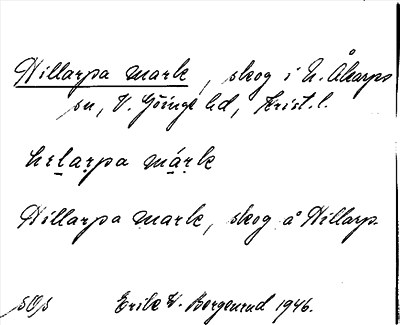 Hillarpa mark, skog i N. Åkarps
sn, V. Göinge hd, Krist. l.
hɪlarpa mark
Hillarpa mark, skog å Hillarp.
Erik W. Borgenrud 1946.